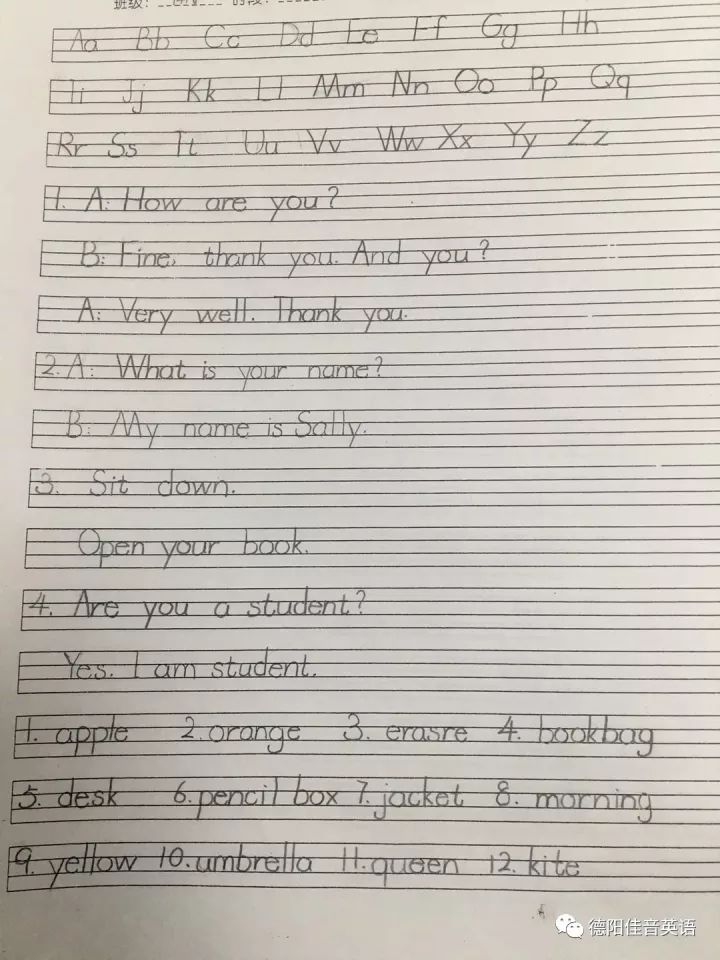 班级: 时段:
Aa Bb Cc Dd Ee Ff Gg Hh
Ii Jj Kk Ll Mm Nn Oo Pp Qq
Rr Ss Tt Uu Vv Ww Xx Yy Zz
1. A: How are you?
B: Fine, thank you. And you?
A: Very well. Thank you.
2. A: What is your name?
B: My name is Sally.
3. Sit down.
Open your book.
4. Are you a student?
Yes. I am student.
1. apple 2. orange 3. erasre 4. bookbag
5. desk 6. pencil box 7. jacket 8. morning
9. yellow 10. umbrella 11. queen 12. kite
德阳佳音英语